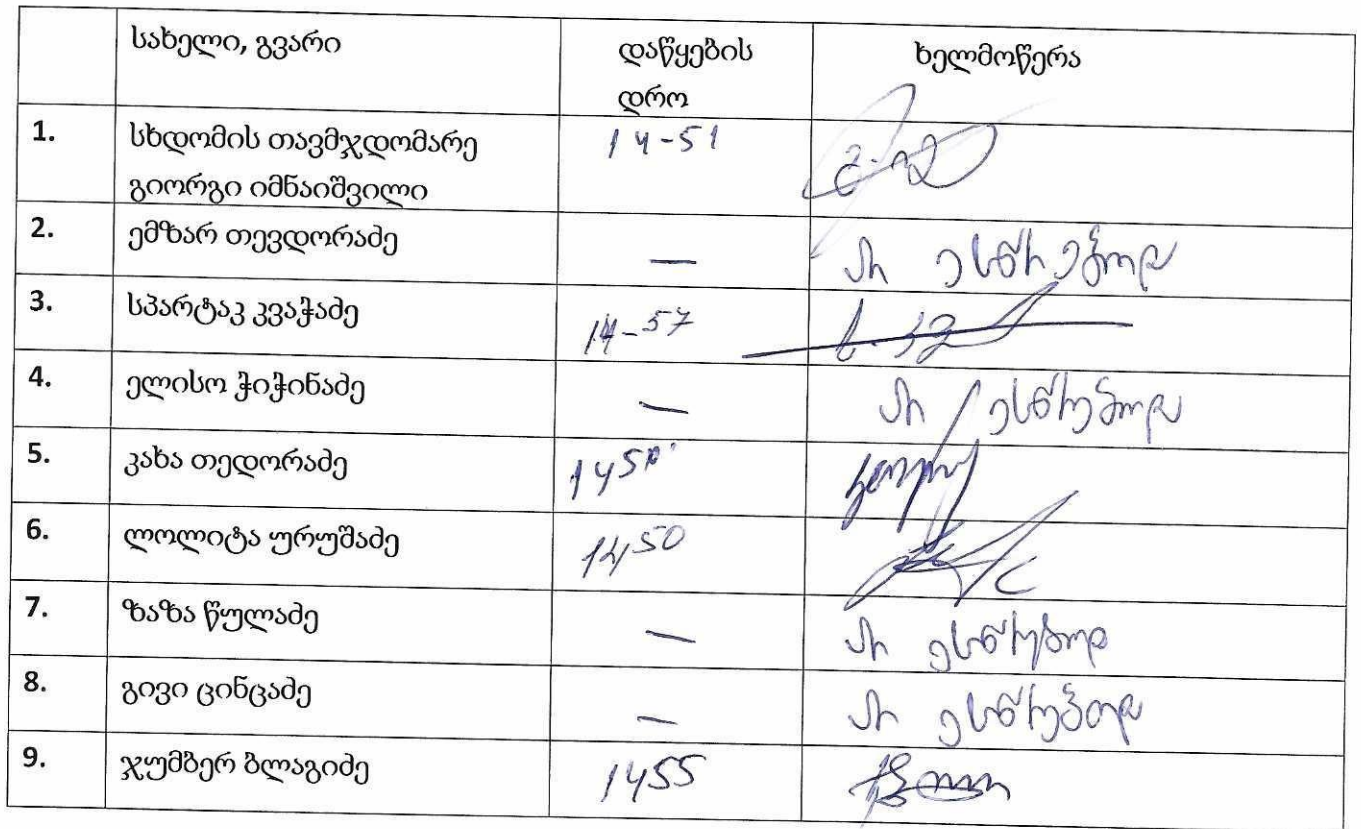 სახელი, გვარი დაწყების ხელმოწერა
დრო
1. სხდომის თავმჯდომარე 14-51
გიორგი იმნაიშვილი
2. ემზარ თევდორაძე — არ ესწრებოდა
3. სპარტაკ კვაჭაძე 14-57
4. ელისო ჭიჭინაძე — არ ესწრებოდა
5. კახა თედორაძე
6. ლოლიტა ურუშაძე 1450
7. ზაზა წულაძე — არ ესწრებოდა
8. გივი ცინცაძე — არ ესწრებოდა
9. ჯუმბერ ბლაგიძე 1455